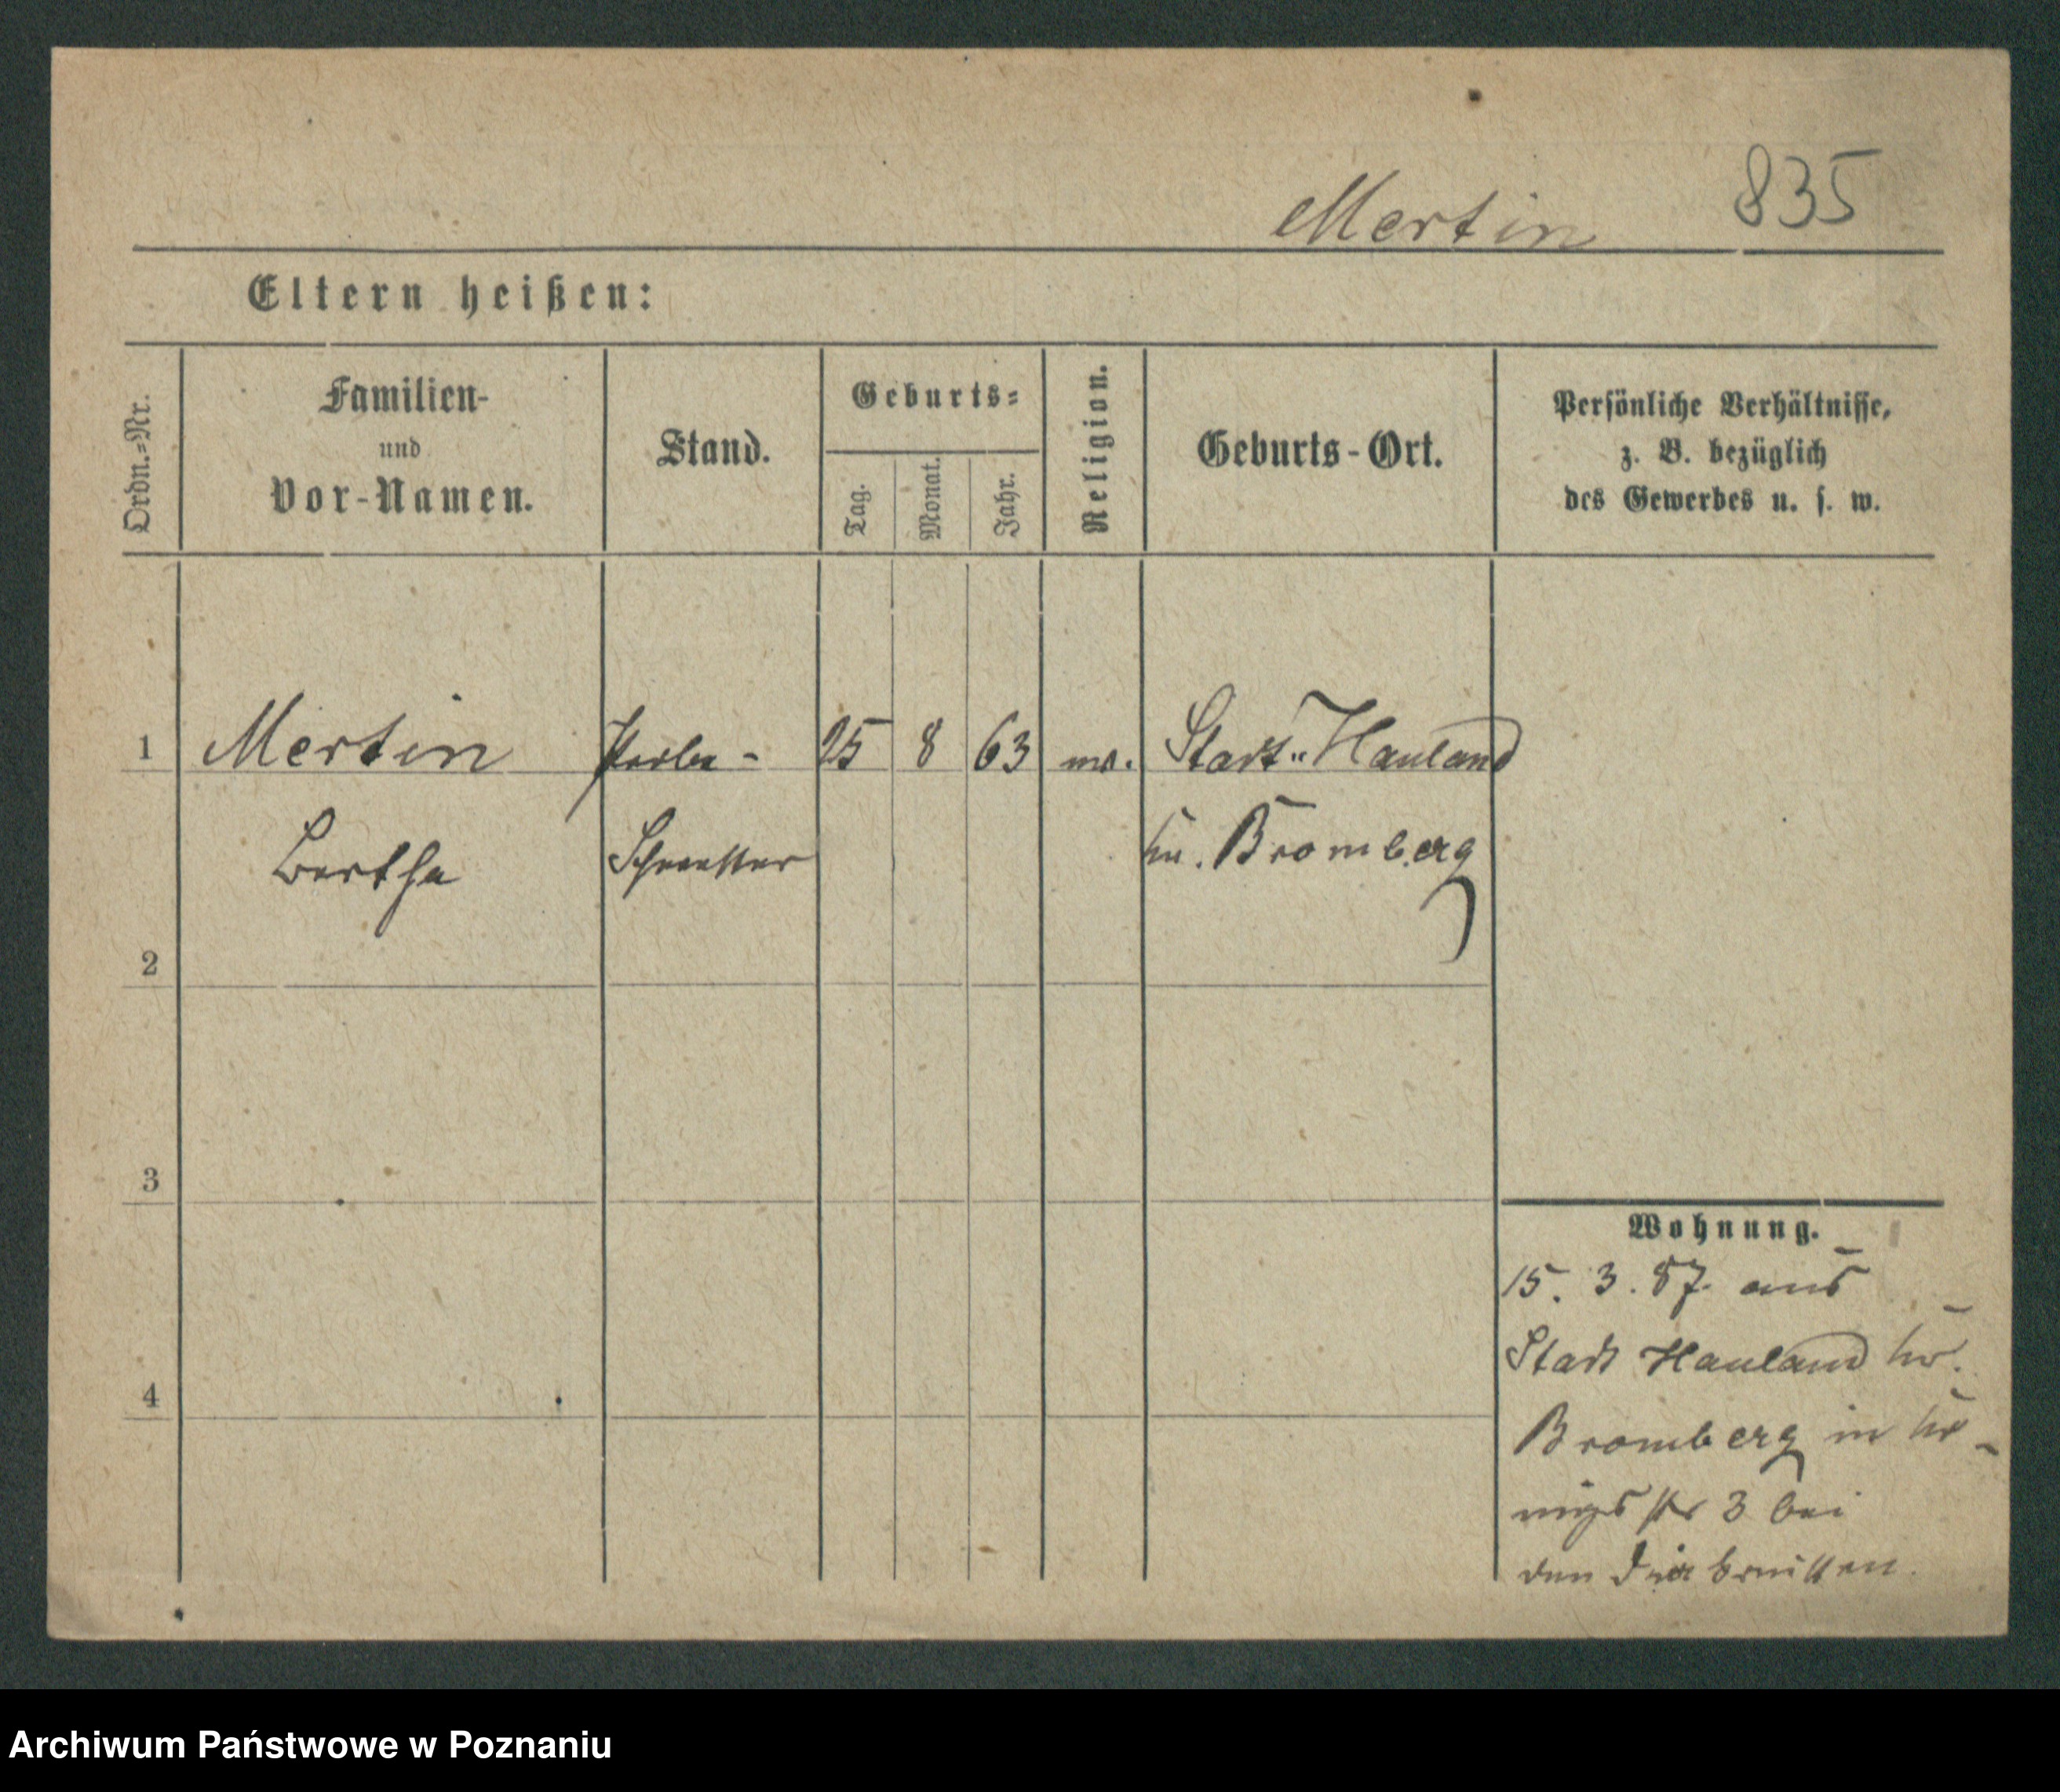 Mertin 835
Eltern heißen:
Ordn.=Nr.
Familien-
und
Vor-Namen.
Stand.
Geburts=
Tag.
Monat.
Jahr.
Religion.
Geburts-Ort.
Persönliche Verhältnisse,
z. B. bezüglich
des Gewerbes u. s. w.
1 Mertin 25 8 63 Stadt-Hauland
Bertha Schwester Bromberg
2
3
4
Wohnung.
15. 3. 87. aus
Stadt Hauland
Bromberg in Kö-
nigsstr 3 bei
den